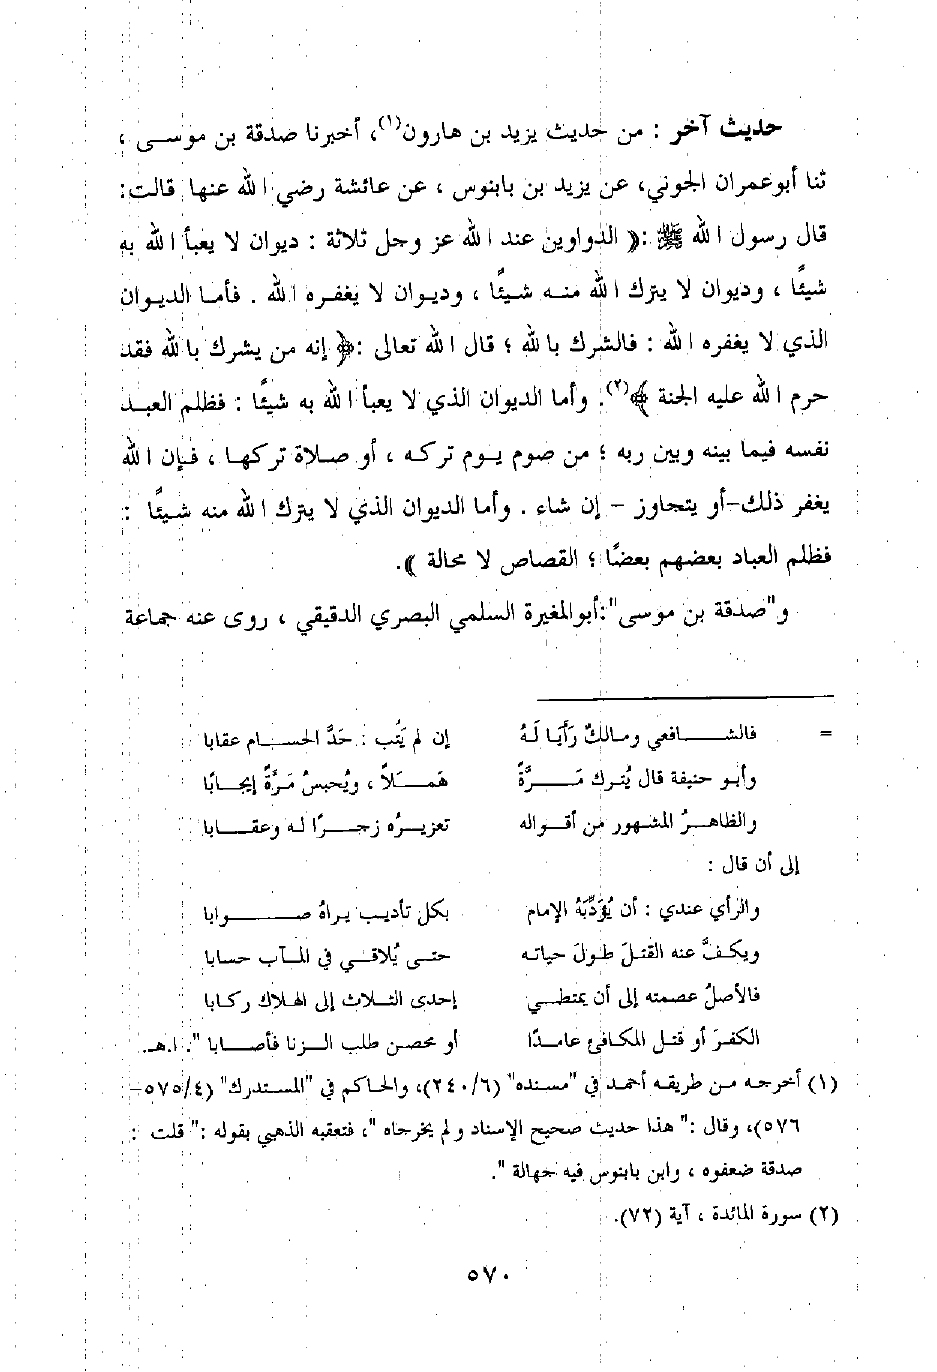 حديث آخر : من حديث يزيد بن هارون(١)، أخبرنا صدقة بن موسى ،
ثنا أبوعمران الجوني، عن يزيد بن بابنوس ، عن عائشة رضي الله عنها قالت:
قال رسول الله ﷺ :﴿ الدواوين عند الله عز وجل ثلاثة : ديوان لا يعبأ الله به
شيئًا ، وديوان لا يترك الله منه شيئًا ، وديوان لا يغفره الله . فأما الديوان
الذي لا يغفره الله : فالشرك بالله ؛ قال الله تعالى :﴿ إنه من يشرك بالله فقد
حرم الله عليه الجنة ﴾(٢). وأما الديوان الذي لا يعبأ الله به شيئًا : فظلم العبد
نفسه فيما بينه وبين ربه ؛ من صوم يوم تركه ، أو صلاة تركها ، فإن الله
يغفر ذلك-أو يتجاوز - إن شاء . وأما الديوان الذي لا يترك الله منه شيئًا :
فظلم العباد بعضهم بعضًا ؛ القصاص لا محالة ﴾.
و"صدقة بن موسى":أبوالمغيرة السلمي البصري الدقيقي ، روى عنه جماعة
= فالشافعي ومالكٌ رَأَيَا لَهُ إن لم يَتُب : حَدَّ الحسام عقابا
وأبو حنيفة قال يُترك مَرَّةً هَمَلاً ، ويُحبسُ مَرَّةً إيجابًا
والظاهرُ المشهور من أقواله تعزيرُه زجرًا له وعقابا
إلى أن قال :
والرأي عندي : أن يُؤَدِّبَهُ الإمام بكل تأديب يراهُ صوابا
ويكفَّ عنه القتلَ طولَ حياته حتى يُلاقي في المآب حسابا
فالأصلُ عصمته إلى أن يمتطي إحدى الثلاث إلى الهلاك ركابا
الكفرَ أو قتل المكافئ عامدًا أو محصن طلب الزنا فأصابا ". ا.هـ.
(١) أخرجه من طريقه أحمد في "مسنده" (٢٤٠/٦)، والحاكم في "المستدرك" (٥٧٥/٤-
٥٧٦)، وقال :" هذا حديث صحيح الإسناد ولم يخرجاه "، فتعقبه الذهبي بقوله :" قلت :
صدقة ضعفوه ، وابن بابنوس فيه جهالة ".
(٢) سورة المائدة ، آية (٧٢).
٥٧٠